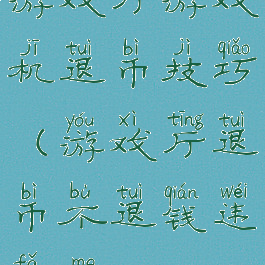 游戏厅游戏
jī tuì bì jì qiǎo
机退币技巧
yóu xì tīng tuì
(游戏厅退
bì bù tuì qián wéi
币不退钱违
fǎ me